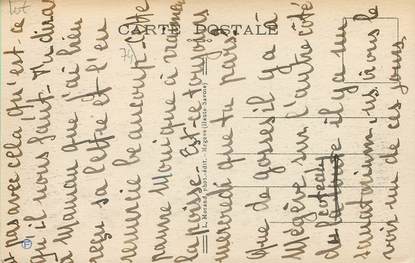 CARTE POSTALE
L. Morand, phot.-édit. - Megève (Haute-Savoie)
t pas avec cela! Qu'est-ce
qu'il vous faut - Tu diras
à Maman que j'ai bien
reçu sa lettre et l'en
remercie beaucoup - Cette
pauvre Monique a vraiment
la poisse. Est-ce toujours
mercredi que tu pars
Que de gosses il y a à
Megève, sur l'autre côté
du coteau il y a un
sanatorium, ns irons le
voir un de ces jours